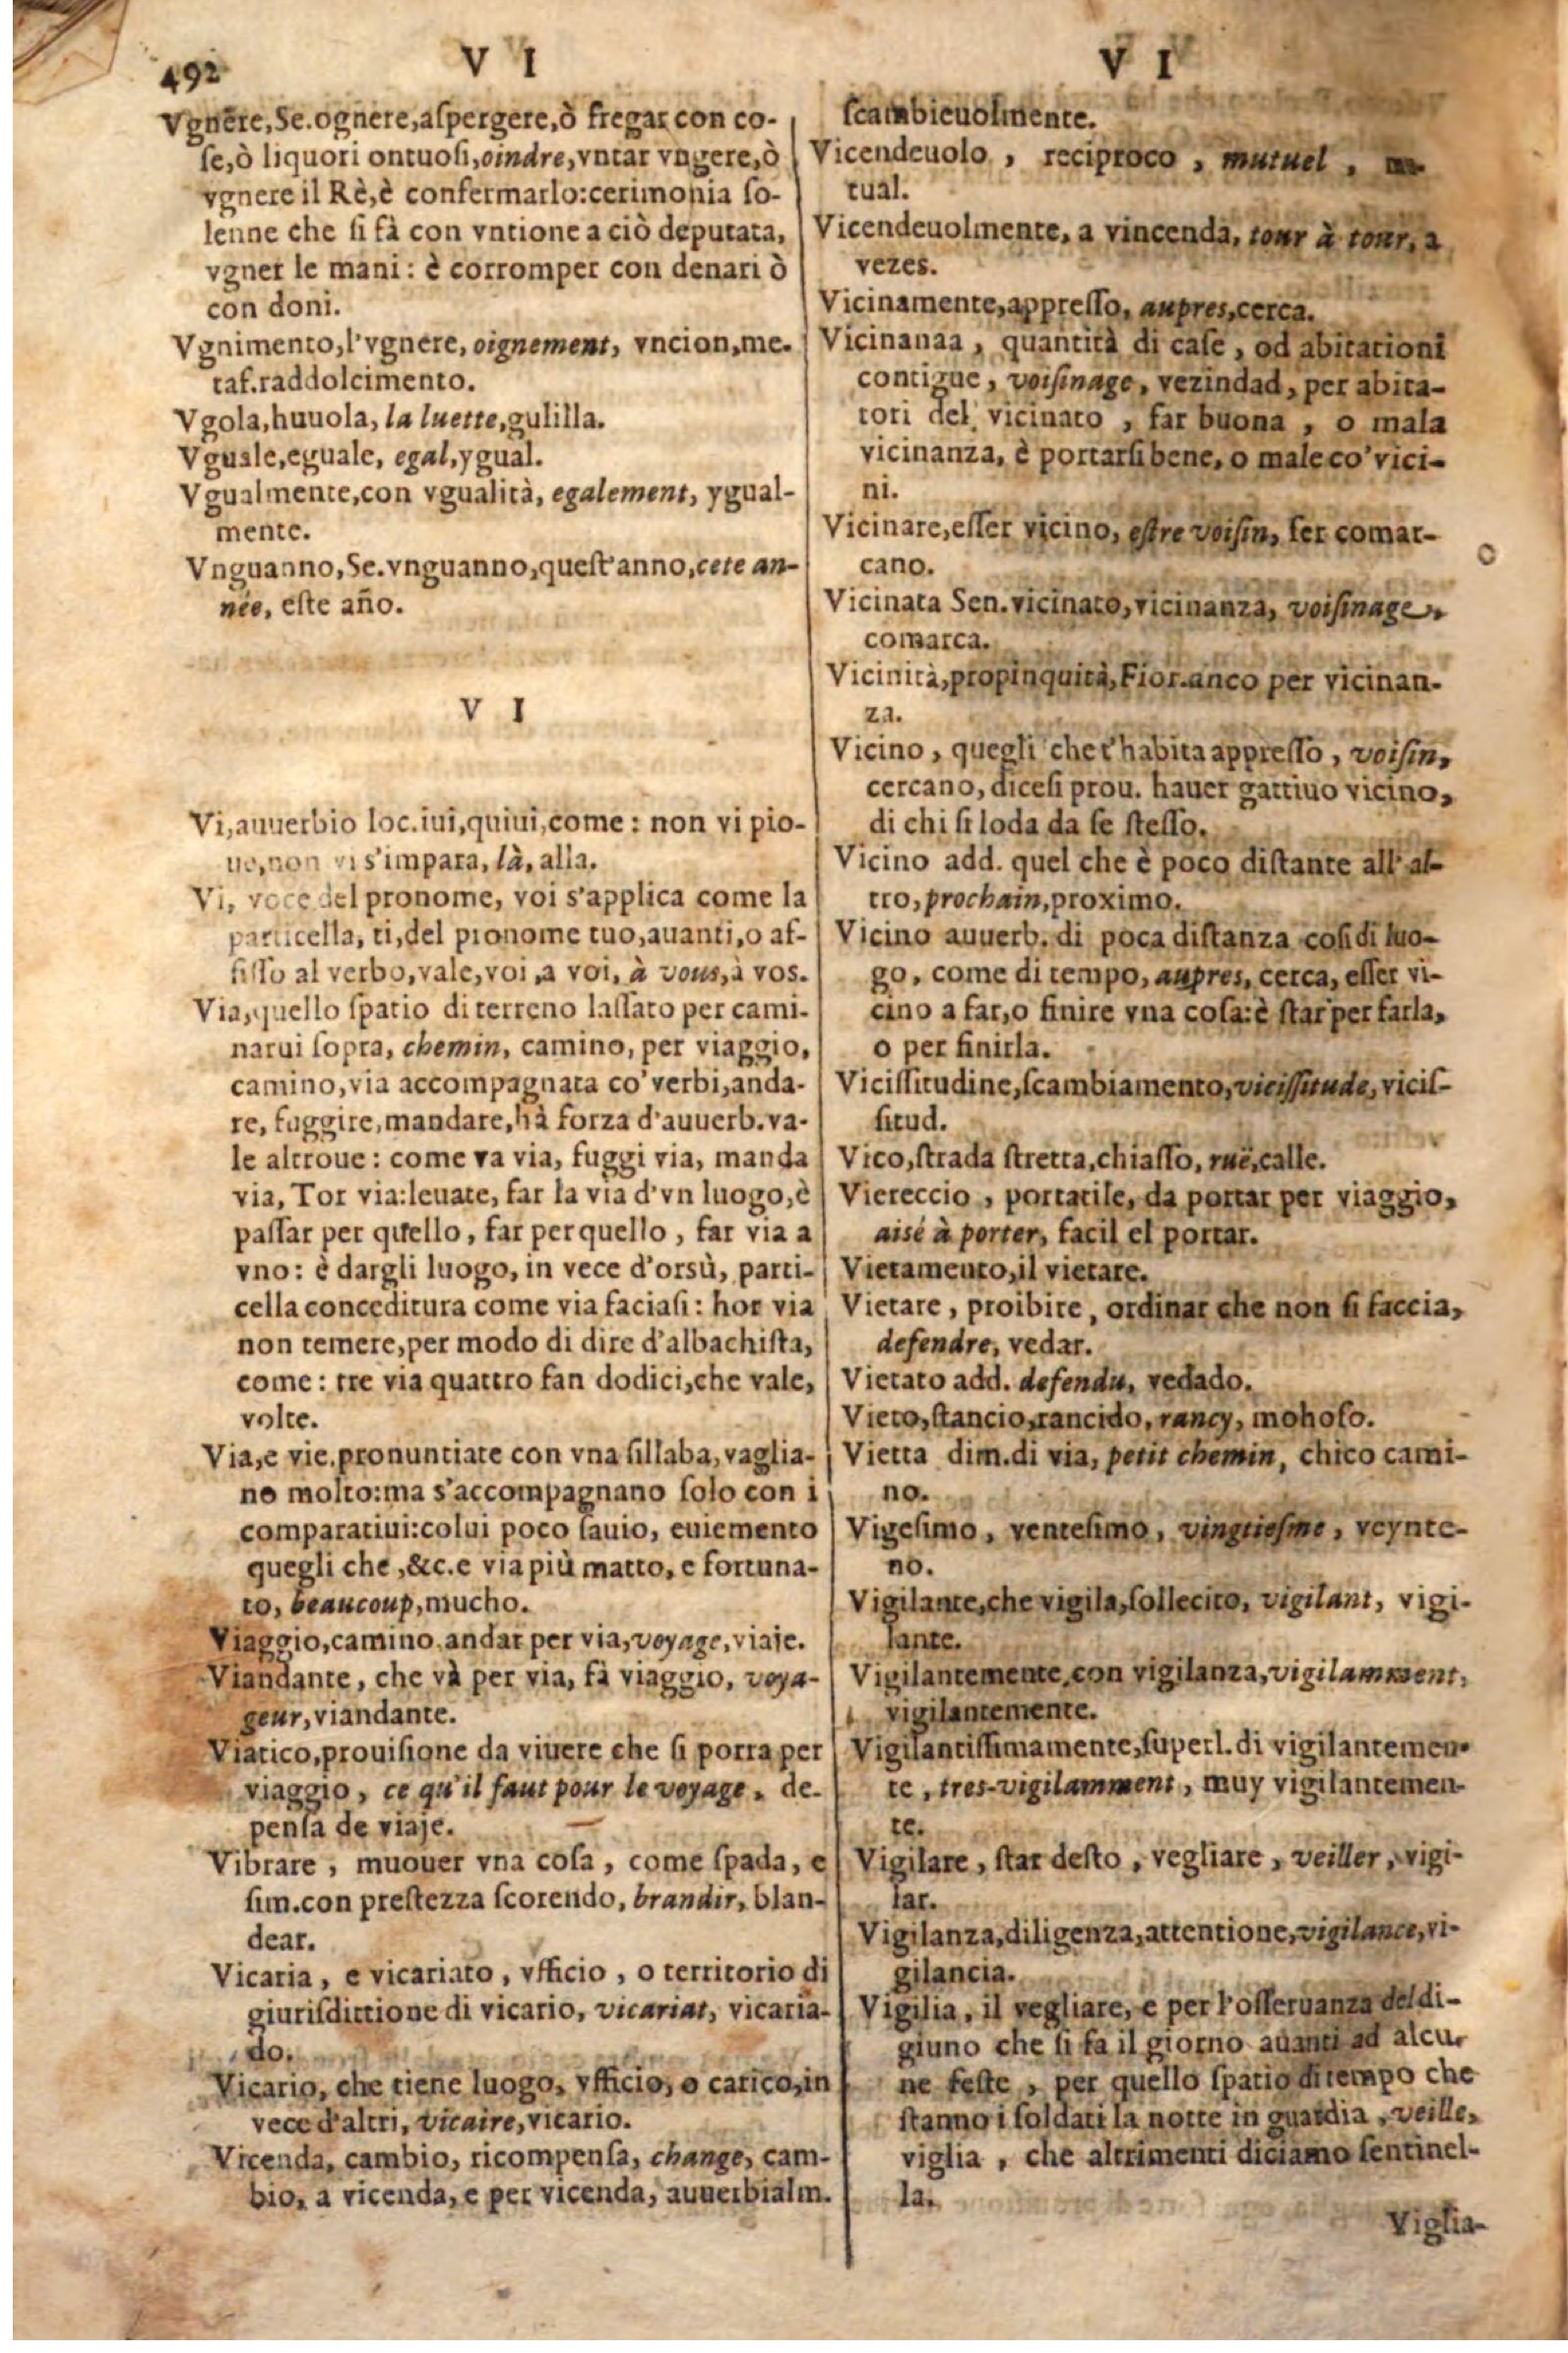 492
V I
V I
Vgnere,Se.ognere,aſpergere,ò fregar con co-
ſe,ò liquori ontuoſi,oindre,vntar vngere,ò
vgnere il Rè,è confermarlo:cerimonia ſo-
lenne che ſi fà con vntione a ciò deputata,
vgner le mani: è corromper con denari ò
con doni.
Vgnimento,l'vgnere, oignement, vncion,me.
taf.raddolcimento.
Vgola,huuola, la luette,gulilla.
Vguale,eguale, egal,ygual.
Vgualmente,con vgualità, egalement, ygual-
mente.
Vnguanno,Se.vnguanno,queſt'anno,cete an-
née, eſte año.
V I
Vi,auuerbio loc.iui,quiui,come: non vi pio-
ue,non vi s'impara, là, alla.
Vi, voce del pronome, voi s'applica come la
particella, ti,del pronome tuo,auanti,o af-
fiſſo al verbo,vale,voi,a voi, à vous,à vos.
Via,quello ſpatio di terreno laſſato per cami-
narui ſopra, chemin, camino, per viaggio,
camino,via accompagnata co'verbi,anda-
re, fuggire,mandare,hà forza d'auuerb.va-
le altroue: come va via, fuggi via, manda
via, Tor via:leuate, far la via d'vn luogo,è
paſſar per quello, far per quello, far via a
vno: è dargli luogo, in vece d'orsù, parti-
cella conceditura come via faciaſi: hor via
non temere,per modo di dire d'albachiſta,
come: tre via quattro fan dodici,che vale,
volte.
Via,e vie.pronuntiate con vna ſillaba, vaglia-
no molto:ma s'accompagnano ſolo con i
comparatiui:colui poco ſauio, euiemento
quegli che,&c.e via più matto, e fortuna-
to, beaucoup,mucho.
Viaggio,camino.andar per via,voyage,viaje.
Viandante, che và per via, fà viaggio, voya-
geur,viandante.
Viatico,prouiſione da viuere che ſi porra per
viaggio, ce qu'il faut pour le voyage, de-
penſa de viaje.
Vibrare, muouer vna coſa, come ſpada, e
ſim.con preſtezza ſcorendo, brandir, blan-
dear.
Vicaria, e vicariato, vfficio, o territorio di
giuriſdittione di vicario, vicariat, vicaria-
do.
Vicario, che tiene luogo, vfficio, o carico,in
vece d'altri, vicaire,vicario.
Vicenda, cambio, ricompenſa, change, cam-
bio, a vicenda, e per vicenda, auuerbialm.
ſcambieuolmente.
Vicendeuolo, reciproco, mutuel,
tual.
Vicendeuolmente, a vincenda, tour à tour, a
vezes.
Vicinamente,appreſſo, aupres,cerca.
Vicinanaa, quantità di caſe, od abitationi
contigue, voiſinage, vezindad, per abita-
tori del vicinato, far buona, o mala
vicinanza, è portarſi bene, o male co'vici-
ni.
Vicinare,eſſer vicino, eſtre voiſin, ſer comar-
cano.
Vicinata Sen.vicinato,vicinanza, voiſinage,
comarca.
Vicinità,propinquità,Fior.anco per vicinan-
za.
Vicino, quegli che t'habita appreſſo, voiſin,
cercano, diceſi prou. hauer gattiuo vicino,
di chi ſi loda da ſe ſteſſo.
Vicino add. quel che è poco diſtante all'al-
tro,prochain,proximo.
Vicino auuerb. di poca diſtanza coſi di luo-
go, come di tempo, aupres, cerca, eſſer vi-
cino a far,o finire vna coſa:è ſtar per farla,
o per finirla.
Viciſſitudine,ſcambiamento,viciſſitude,viciſ-
ſitud.
Vico,ſtrada ſtretta,chiaſſo, ruë,calle.
Viereccio, portatile, da portar per viaggio,
aisé à porter, facil el portar.
Vietamento,il vietare.
Vietare, proibire, ordinar che non ſi faccia,
defendre, vedar.
Vietato add. defendu, vedado.
Vieto,ſtancio,rancido, rancy, mohoſo.
Vietta dim.di via, petit chemin, chico cami-
no.
Vigeſimo, venteſimo, vingtieſme, veynte-
no.
Vigilante,che vigila,ſollecito, vigilant, vigi-
lante.
Vigilantemente,con vigilanza,vigilamment,
vigilantemente.
Vigilantiſſimamente,ſuperl.di vigilantemen-
te, tres-vigilamment, muy vigilantemen-
te.
Vigilare, ſtar deſto, vegliare, veiller, vigi-
lar.
Vigilanza,diligenza,attentione,vigilance,vi-
gilancia.
Vigilia, il vegliare, e per l'oſſeruanza del di-
giuno che ſi fa il giorno auanti ad alcu-
ne feſte, per quello ſpatio di tempo che
ſtanno i ſoldati la notte in guardia, veille,
viglia, che altrimenti diciamo ſentinel-
la.
Viglia-